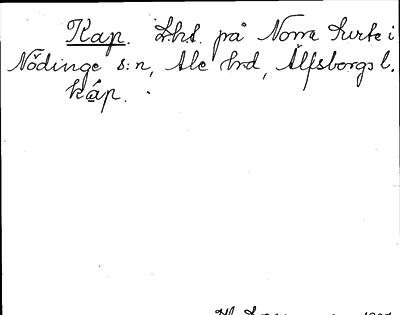 Kap. Lhs. på Norra Surte i
Nödinge s:n, Ale hrd, Älfsborgs l.
káp.